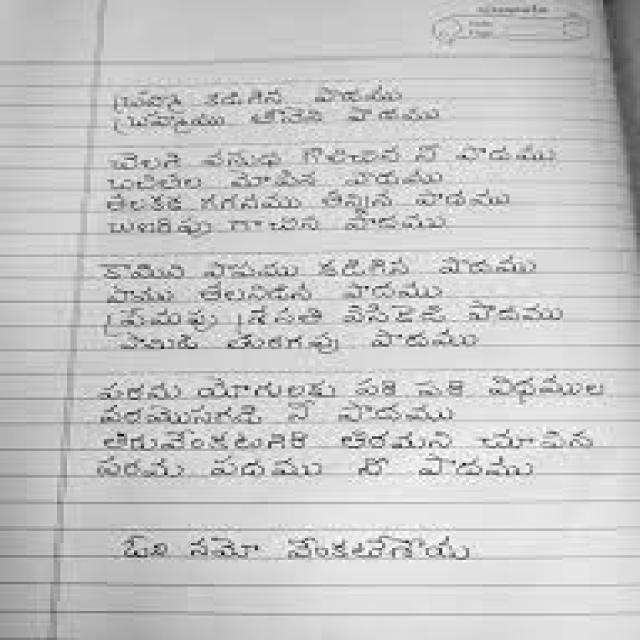 బ్రహ్మ కడిగిన పాదము
బ్రహ్మము తానెని పాదము
చెలగి వసుధ గొలిచిన నీ పాదము
బలితల మోపిన పాదము
తలకక గగనము తన్నిన పాదము
బలరిపు గాచిన పాదము
కామిని పాపము కడిగిన పాదము
పాము తలనిడిన పాదము
ప్రేమపు శ్రీసతి పిసికెడి పాదము
పామిడి తురగపు పాదము
పరమ యోగులకు పరి పరి విధముల
పరమొసగెడి నీ పాదము
తిరువేంకటగిరి తిరమని చూపిన
పరమ పదము నీ పాదము
ఓం నమో వేంకటేశాయ